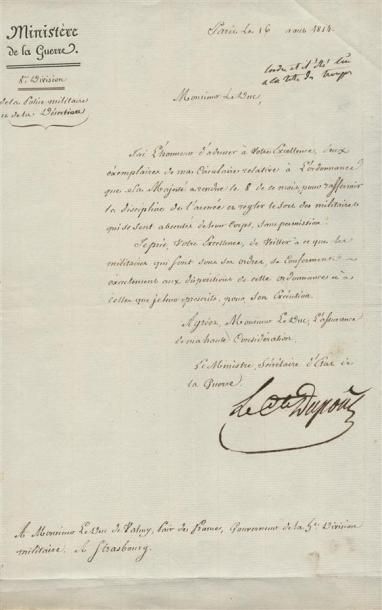 Ministère
de la Guerre.
8e. Division
de la Police militaire
et de la Désertion
Paris Le 16 aout 1814.
a la tête des troupes
Monsieur Le Duc,
J'ai L'honneur d'adresser à Votre Excellence, deux
exemplaires de ma Circulaire relative à L'ordonnance
que Sa Majesté a rendue le 8 de ce mois, pour raffermir
la discipline de l'armée et régler le sort des militaires
qui se sont absentés de leur Corps, sans permission.
Je prie, Votre Excellence, de Veiller à ce que les
militaires qui sont sous son Ordres, se Conforment
exactement aux dispositions de cette ordonnance et à
celles que je leur prescrits, pour son Exécution.
Agréez, Monsieur Le Duc, L'assurance
de ma haute Considération.
Le Ministre, Secrétaire d'Etat de
la Guerre.
Le Cte Dupont
A Monsieur Le Duc de Valmy, Pair de France, Gouverneur de la 5e. Division
militaire. A Strasbourg.